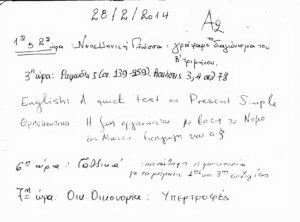 28/2/2014
A2
1η & 2η ώρα: Νεοελληνική Γλώσσα: γράψαμε το διαγώνισμα του
Β' τριμήνου.
3η ώρα: (σελ. 3, 4 σελ 78
English: A quick test on Present Simple
Θρησκευτικά: Η ζωή οργανώνεται με βάση το Νόμο
του
6η ώρα: Γαλλικά:
με τα ρήματα 1ης και 3ης συζυγίας
7η ώρα: Οικ. Οικονομία: Υπερτροφές